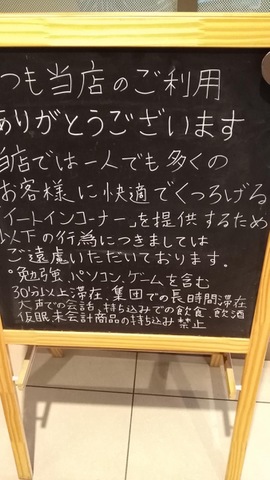 つも当店のご利用
ありがとうございます
当店では一人でも多くの
お客様に快適でくつろげる
「イートインコーナー」を提供するため
以下の行為につきましては
ご遠慮いただいております。
°勉強、パソコン、ゲームを含む
30分以上滞在、集団での長時間滞在
大声での会話、持ち込みでの飲食、飲酒
仮眠、未会計商品の持ち込み 禁止